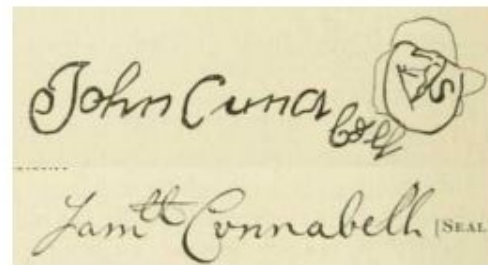 John Cuna bell LS
Jamtt Connabell [SEAL